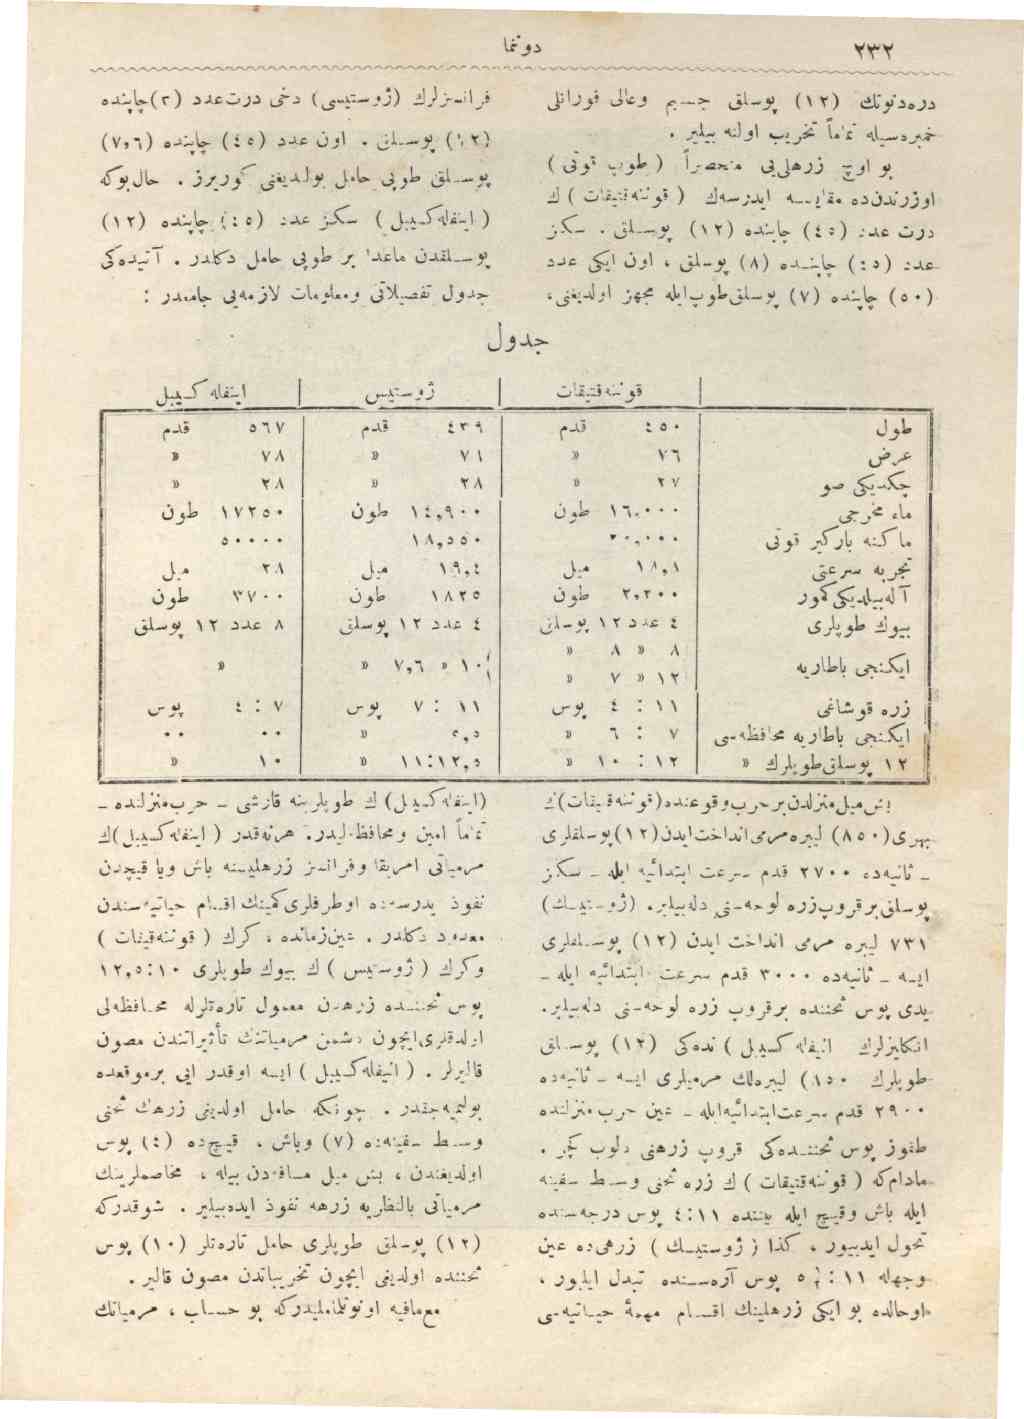 ٢٣٢
دوننما
دره‌دنوتك (١٢) پوسلق جسيم وعالى فورانلى
خمبره‌سيله تماماً تخريب اولنه بيلير .
بو اوچ زرهلى‌يى منحصراً ( طوپ قوتى )
اوزرندن‌ده مقايسه ايدرسه‌ك ( قوننه‌قتيقات ) ك
درت عدد (٤٥) چاپنده (١٢) پوسلق . سكز
عدد (٤٥) چاپنده (٨) پوسلق ، اون ايكى عدد
(٥٠) چاپنده (٧) پوسلق طوپ‌ايله مجهز اولديغنى،
فرانسزلرك (ژوستيسى) دخى درت عدد (٣) چاپنده
(١٢) پوسلق . اون عدد (٤٥) چاپنده (٧,٦)
پوسلق طوپى حامل بولنديغنى كوريرز . حال‌بوكه
( اينفله‌كسيبل ) سكز عدد (٤٥) چاپنده (١٢)
پوسلقدن ماعدا بر طوپى حامل دكلدر . آتيده‌كى
جدول تفصيلاتى ومعلومات لازمه‌يى جامعدر :
جدول
قوننه‌قتيقات | ژوستيس | اينفله كسيبل
طول ٤٥٠ قدم ٤٣٩ قدم ٥٦٧ قدم
عرض ٧٦ » ٧١ » ٧٨ »
چكديكى صو ٢٧ » ٢٨ » ٢٨ »
ماء مخرجى ١٦,٠٠٠ طون ١٤,٩٠٠ طون ١٧٢٥٠ طون
ماكنه باركير قوتى ٢٠,٠٠٠ ١٨,٥٥٠ ٥٠٠٠٠
تجربه سرعتى ١٨,١ ميل ١٩,٤ ميل ٢٨ ميل
آله‌بيلديكى كمور ٢,٢٠٠ طون ١٨٢٥ طون ٣٧٠٠ طون
بيوك طوپلرى ٤ عدد ١٢ پوسلق ٤ عدد ١٢ پوسلق ٨ عدد ١٢ پوسلق
٨ » ٨ »
ايكنجى باطاريه ١٠ » ٧,٦ » »
١٢ » ٧ »
زره قوشاغى ١١ : ٤ پوس ١١ : ٧ پوس ٧ : ٤ پوس
ايكنجى باطاريه محافظه‌سى ٧ : ٦ » ٥,٥ » ٠٠ ٠٠
١٢ پوسلق‌طوپلرك » ١٢ : ١٠ » ١٢,٥:١١ » ١٠ »
بش‌ميل منزلدن بر حرب وقوعنده (قوننه‌قتيقات) ك
بهرى (٨٥٠) ليبره مرمى انداخت ايدن (١٢) پوسلقلرى
ـ ثانيه‌ده ٢٧٠٠ قدم سرعت ابتدائيه ايله ـ سكز
پوسلق بر قروپ زره لوحه‌سنى دله‌بيلير. (ژوستيسك)
٧٣١ ليبره مرمى انداخت ايدن (١٢) پوسلقلرى
ايسه ـ ثانيه‌ده ٣٠٠٠ قدم سرعت ابتدائيه ايله ـ
يدى پوس ثخننده بر قروپ زره لوحه‌سنى دله‌بيلير.
انكليزلرك انيفله كسيبل ) نده‌كى (١٢) پوسلق
طوپلرك ٨٥٠) ليبره‌لك مرميلرى ايسه ـ ثانيه‌ده
٢٩٠٠ قدم سرعت ابتدائيه‌ايله ـ عين حرب منزلنده
طقوز پوس ثخننده‌كى قروپ زرهنى دلوب كچر .
مادام‌كه ( قوننه‌قتيقات ) ك زره ثخنى وسط سفينه
ايله باش وقيچ ايله بيننده ٤:١١ پوس درجه‌سنده
تحول ايدييور ، كذا ( ژوستيسك ) زرهى‌ده عين
وجهله ١١ : پوس آره‌سنده تبدل ايليور ،
اوحالده بو ايكى زرهلينك اقسام مهمهٔ حياتيه‌سى
(اينفله‌كسيبل) ك طوپلرينه قارشى ـ حرب منزلنده ـ
تماماً امين ومحافظه‌ليدر. هرنه‌قدر ( اينفله كسيبل ) ك
مرمياتى امريقا وفرانسز زرهليسنه باش ويا قيچدن
نفوذ ايدرسه‌ده اوطرفلرى كمينك اقسام حياتيه‌سندن
معدود دكلدر . عين‌زمانده ، كرك ( قوننه‌قيتات )
وكرك ( ژوستيس ) ك بيوك طوپلرى ١٢,٥:١٠
پوس ثخننده زرهدن معمول تاره‌تلرله محافظه‌لى
اولدقلرى‌ايچون دشمن مرمياتنك تأثيراتندن مصون
قاليرلر . ( انيفله كسيبل ) ايسه اوقدر ايى برموقعده
بولنميه‌جقدر . چونكه حامل اولديغى زرهك ثخنى
وسط سفينه‌ده (٧) وباش ، قيچ‌ده (٤) پوس
اولديغندن ، بش ميل مسافه‌دن بيله ، مخاصملرينك
مرمياتى بالنظريه زرهه نفوذ ايده‌بيلير . شوقدركه
(١٢) پوسلق طوپلرى حامل تاره‌تلر (١٠) پوس
ثخننده اولديغى ايچون تخريباتدن مصون قالير .
مع‌مافيه اونوتلمامليدركه بو حساب ، مرمياتك